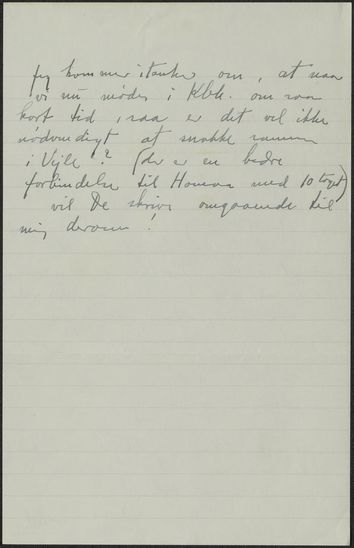 Jeg kommer i tanke om, at naar
vi nu mødes i Kbh. om saa
kort tid, saa er det vel ikke
nødvendigt at snakke sammen
i Vejle? (der er en bedre
forbindelse til Horsens med 10 toget)
vil De skrive omgaaende til
mig derom!